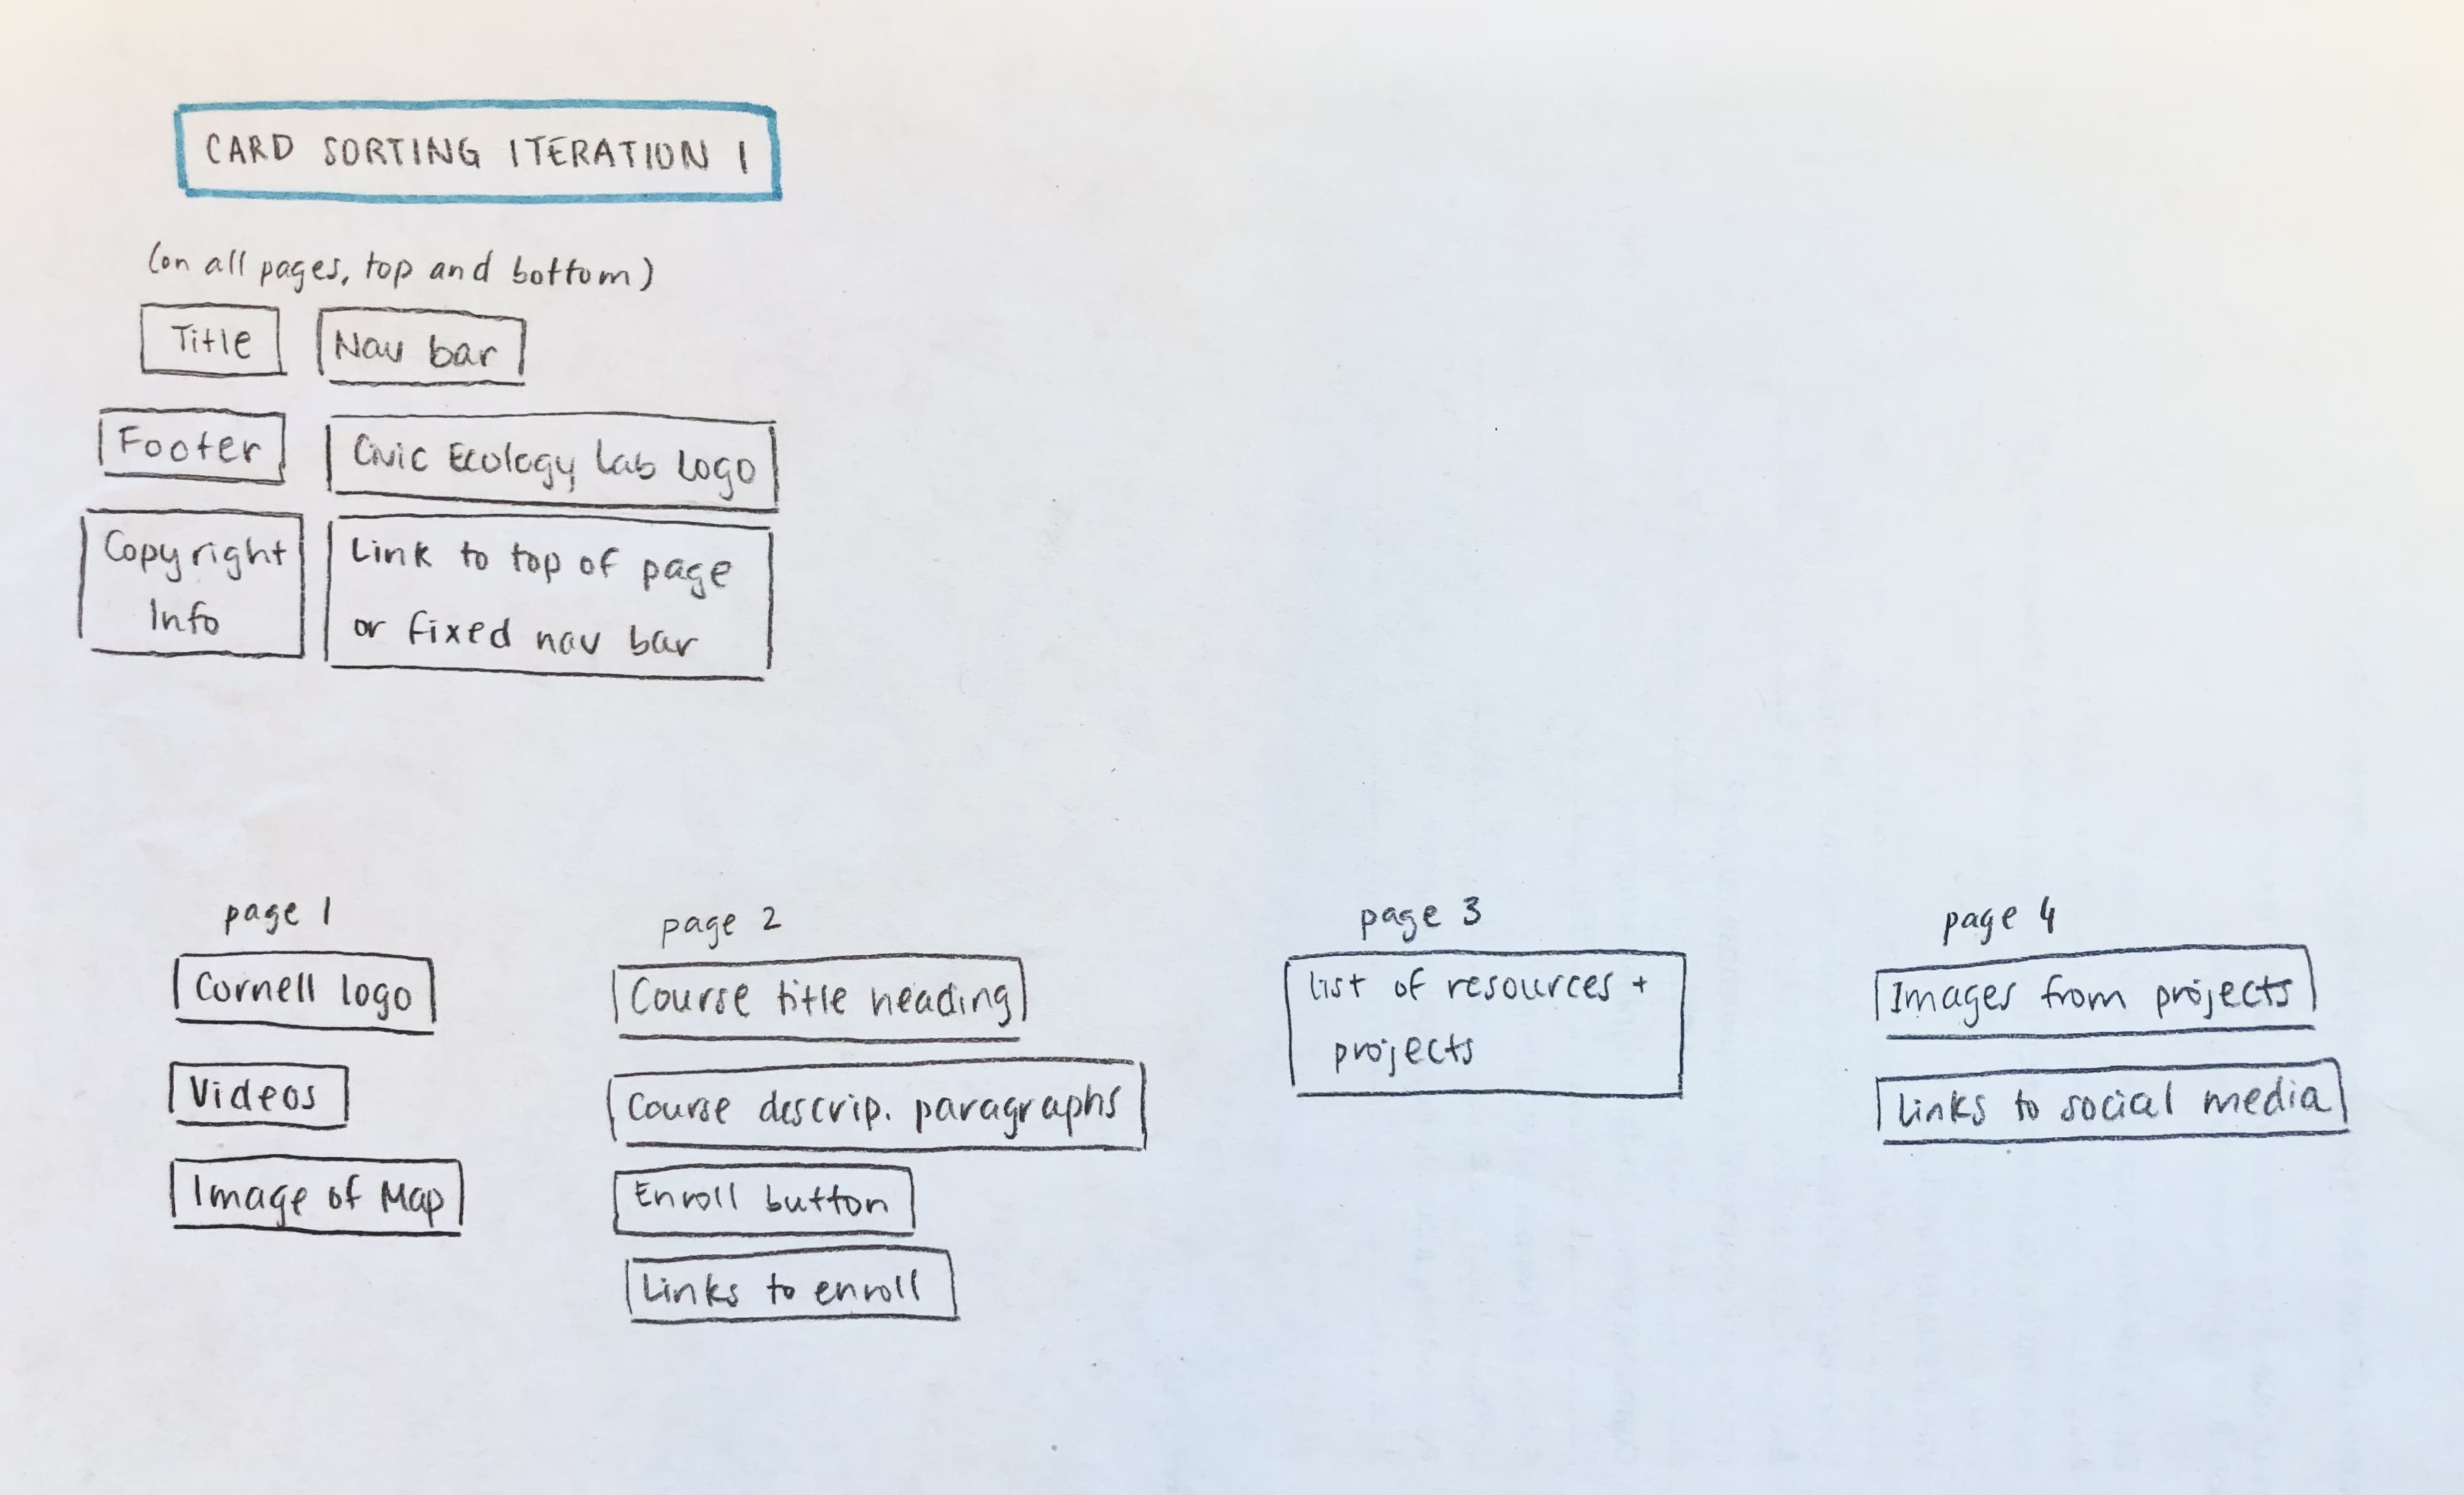 CARD SORTING ITERATION 1
(on all pages, top and bottom)
Title
Nav bar
Footer
Civic Ecology Lab Logo
Copyright
Info
Link to top of page
or fixed nav bar
page 1
Cornell logo
Videos
Image of Map
page 2
Course title heading
Course descrip. paragraphs
Enroll button
Links to enroll
page 3
list of resources +
projects
page 4
Images from projects
Links to social media